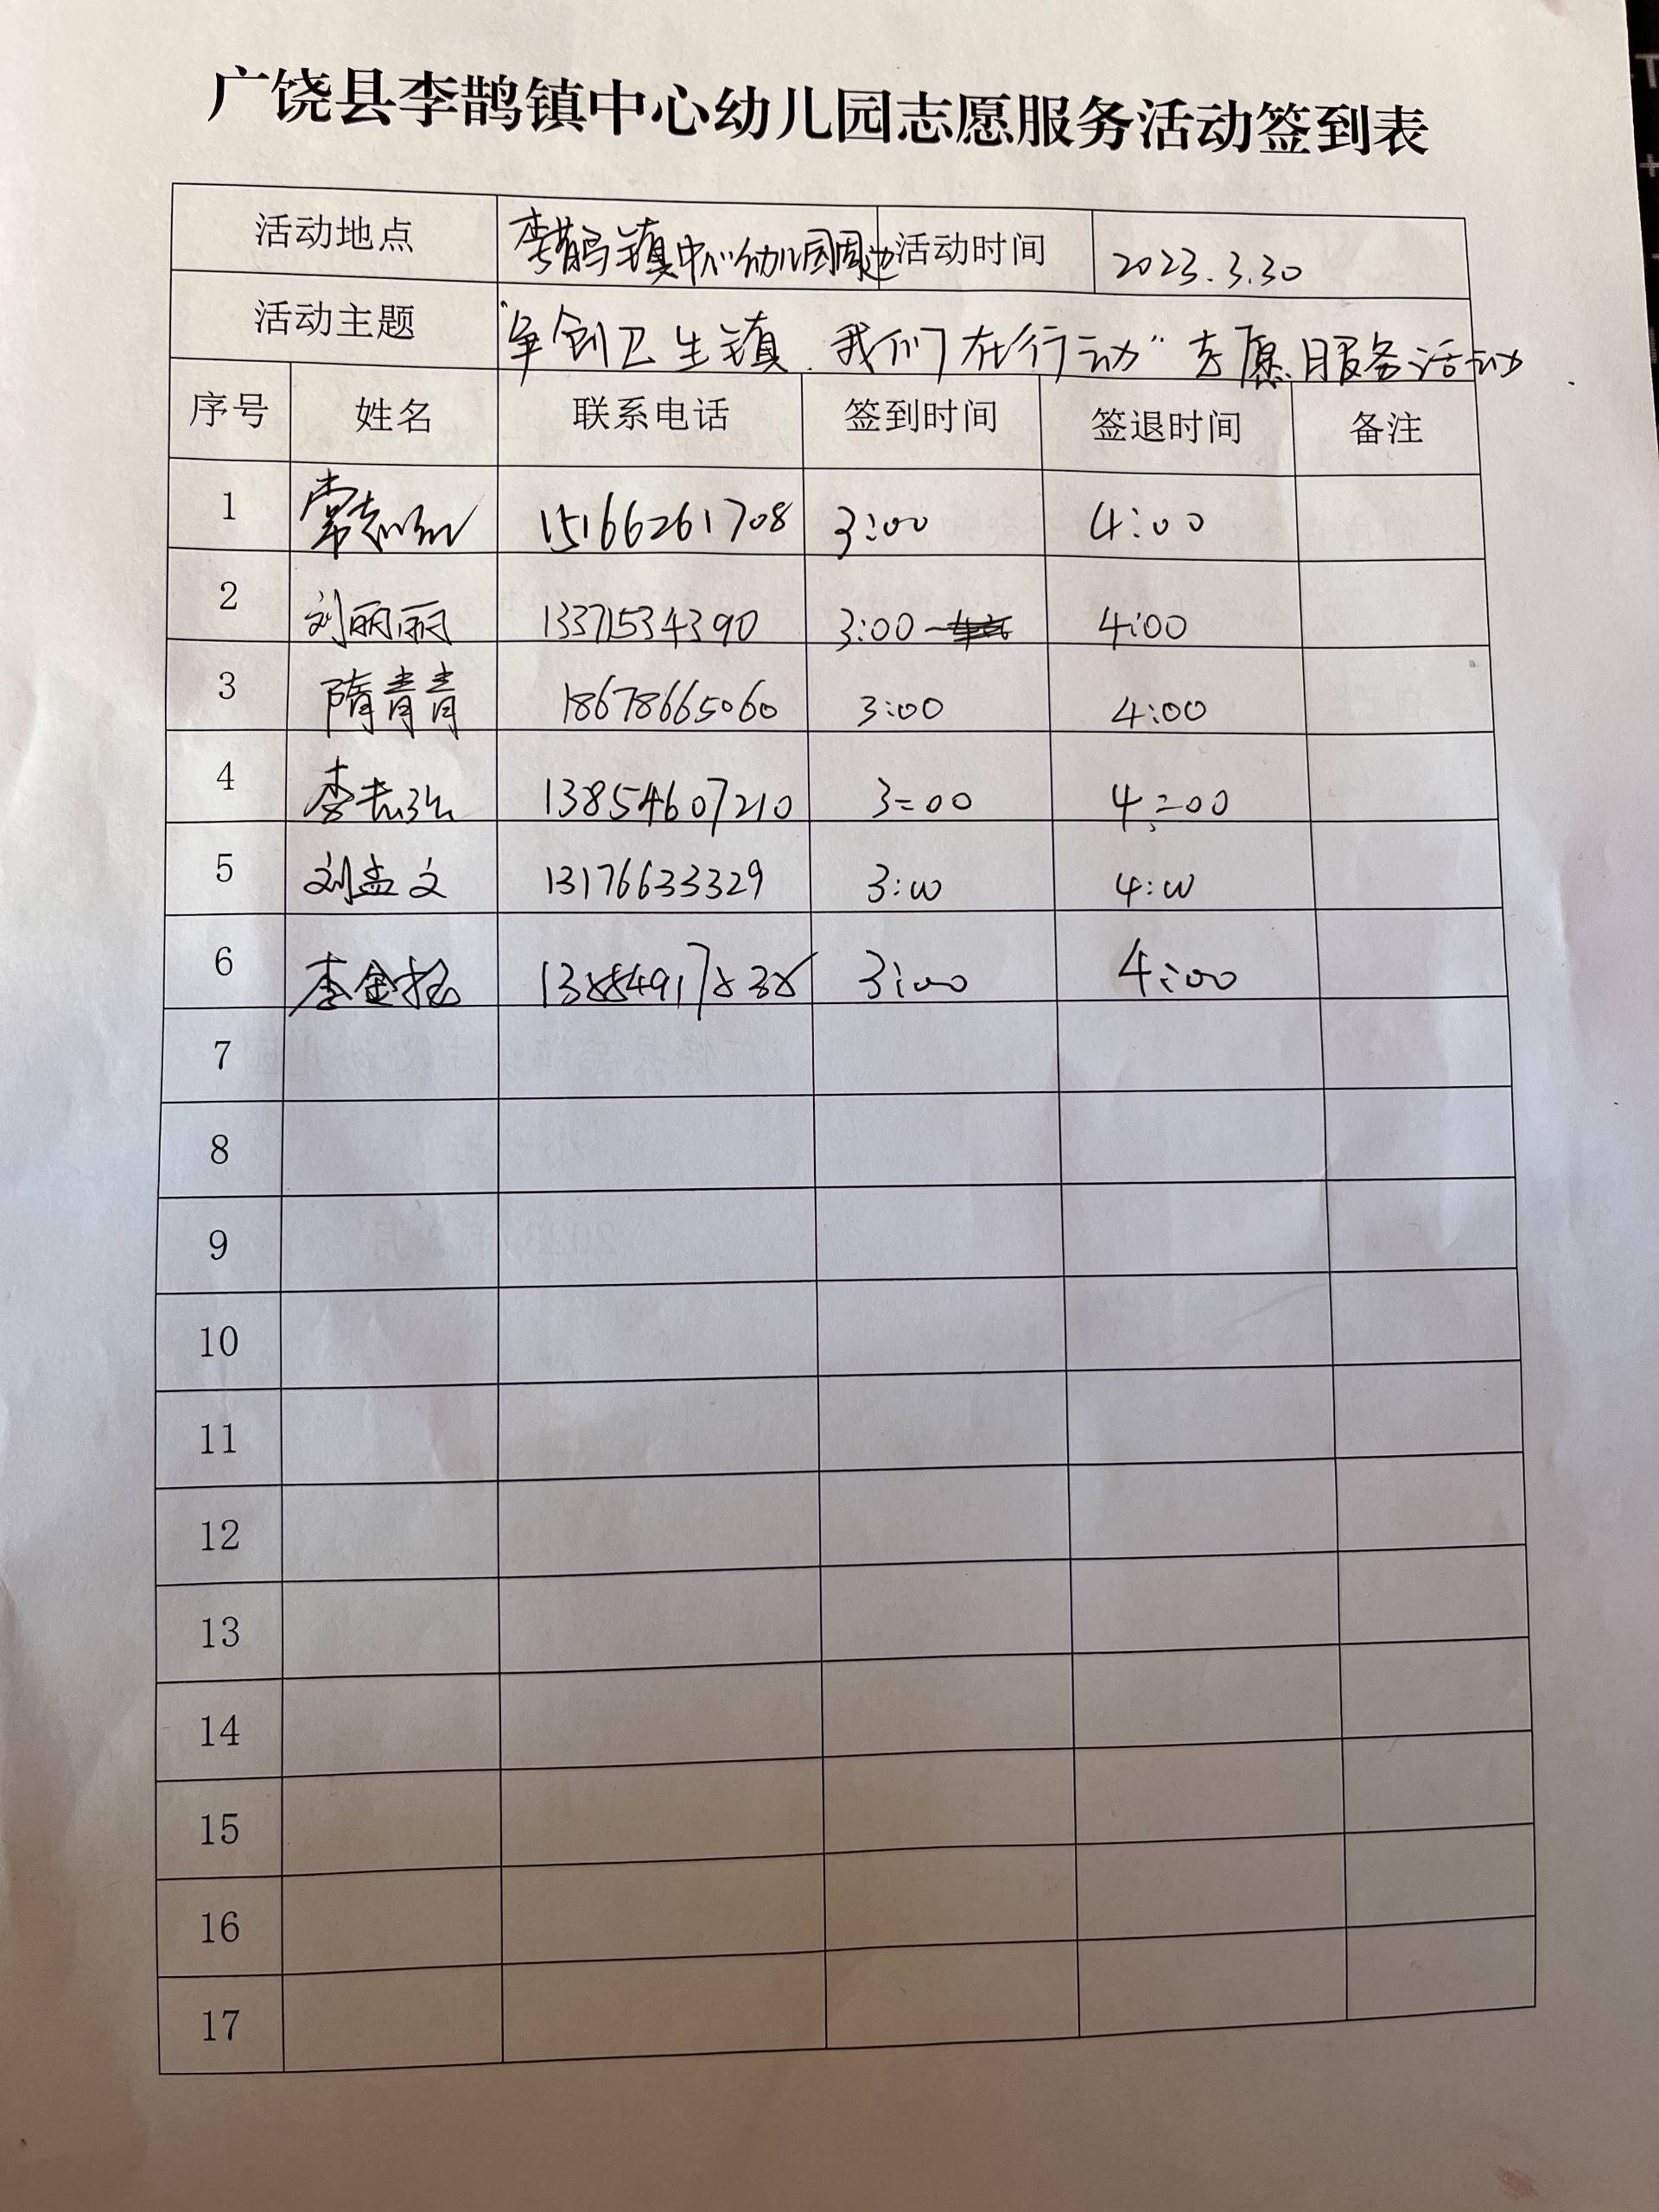 广饶县李鹊镇中心幼儿园志愿服务活动签到表
活动地点 李鹊镇中心幼儿园周边 活动时间 2023.3.30
活动主题 "争创卫生镇.我们在行动"志愿服务活动
序号 姓名 联系电话 签到时间 签退时间 备注
1 常志 15166261708 3:00 4:00
2 刘丽丽 13371534390 3:00 4:00
3 隋青青 18678665060 3:00 4:00
4 李志弘 13854607210 3:00 4:00
5 刘孟文 13176633329 3:00 4:00
6 李金 3:00 4:00
7
8
9
10
11
12
13
14
15
16
17